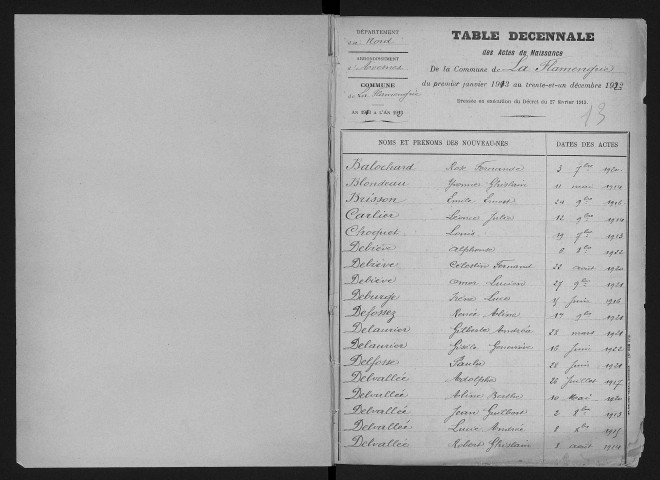 DÉPARTEMENT
du Nord
ARRONDISSEMENT
d'Avesnes
COMMUNE
de La Flamengrie
TABLE DÉCENNALE
des Actes de Naissance
De la Commune de La Flamengrie
du premier janvier 1913 au trente-et-un décembre 1922
Dressée en exécution du Décret du 27 février 1815.
13
NOMS ET PRÉNOMS DES NOUVEAU-NÉS DATES DES ACTES
Balochard Rose Fernande 3 7bre 1920
Blondeau Yvonne Ghislain 11 mai 1914
Brisson Emile Ernest 24 9bre
Carlier Léonce Jules 12 9bre 1914
Choquet Louis 19 7bre 1913
Debiève Alphonse 8bre 1922
Debiève Célestin Fernand 22 août 1920
Debiève Omer Lucien 27 9bre 1920
Deburge Irène Luce Juin 1916
Defossez Renée Aline 17 9bre 1921
Delaunier Gilberte Andréa 28 mars 1921
Delaunier Gisèle Geneviève 16 Juin 1922
Delfosse Paula 28 Juin 1921
Delvallée Adolphe 26 Juillet 1917
Delvallée Aline Berthe 10 Mai 1920
Delvallée Jean Guilbert 2 8bre 1913
Delvallée Lucie Andrée 8 Xbre 1915
Delvallée Robert Ghislain 2 avril 1914